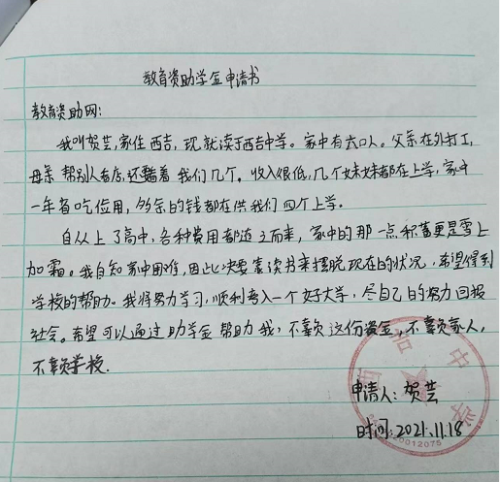 教育资助学金申请书
教育资助网:
我叫贺芸,家住西吉,现就读于西吉中学。家中有六口人。父亲在外打工,
母亲帮别人看店,还照看着我们几个。收入很低,几个妹妹都在上学,家中
一年省吃俭用,多余的钱都在供我们四个上学。
自从上了高中,各种费用都随之而来,家中的那一点积蓄更是雪上
加霜。我自知家中困难,因此决要靠读书来摆脱现在的状况,希望得到
学校的帮助。我将努力学习,顺利考入一个好大学,尽自己的努力回报
社会。希望可以通过助学金帮助我,不辜负这份资金,不辜负家人,
不辜负学校.
申请人:贺芸
时间 2021.11.18
西吉中学